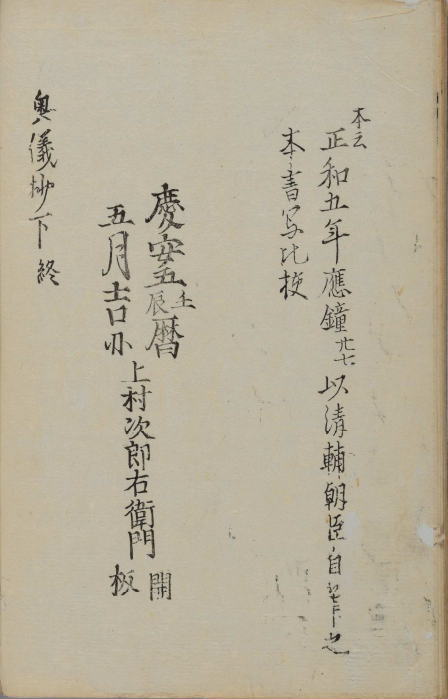 本云
正和五年應鐘廿七以清輔朝臣自
本書写比挍
慶安五壬辰暦
五月吉
上村次郎右衛門
開板
奥儀抄下終